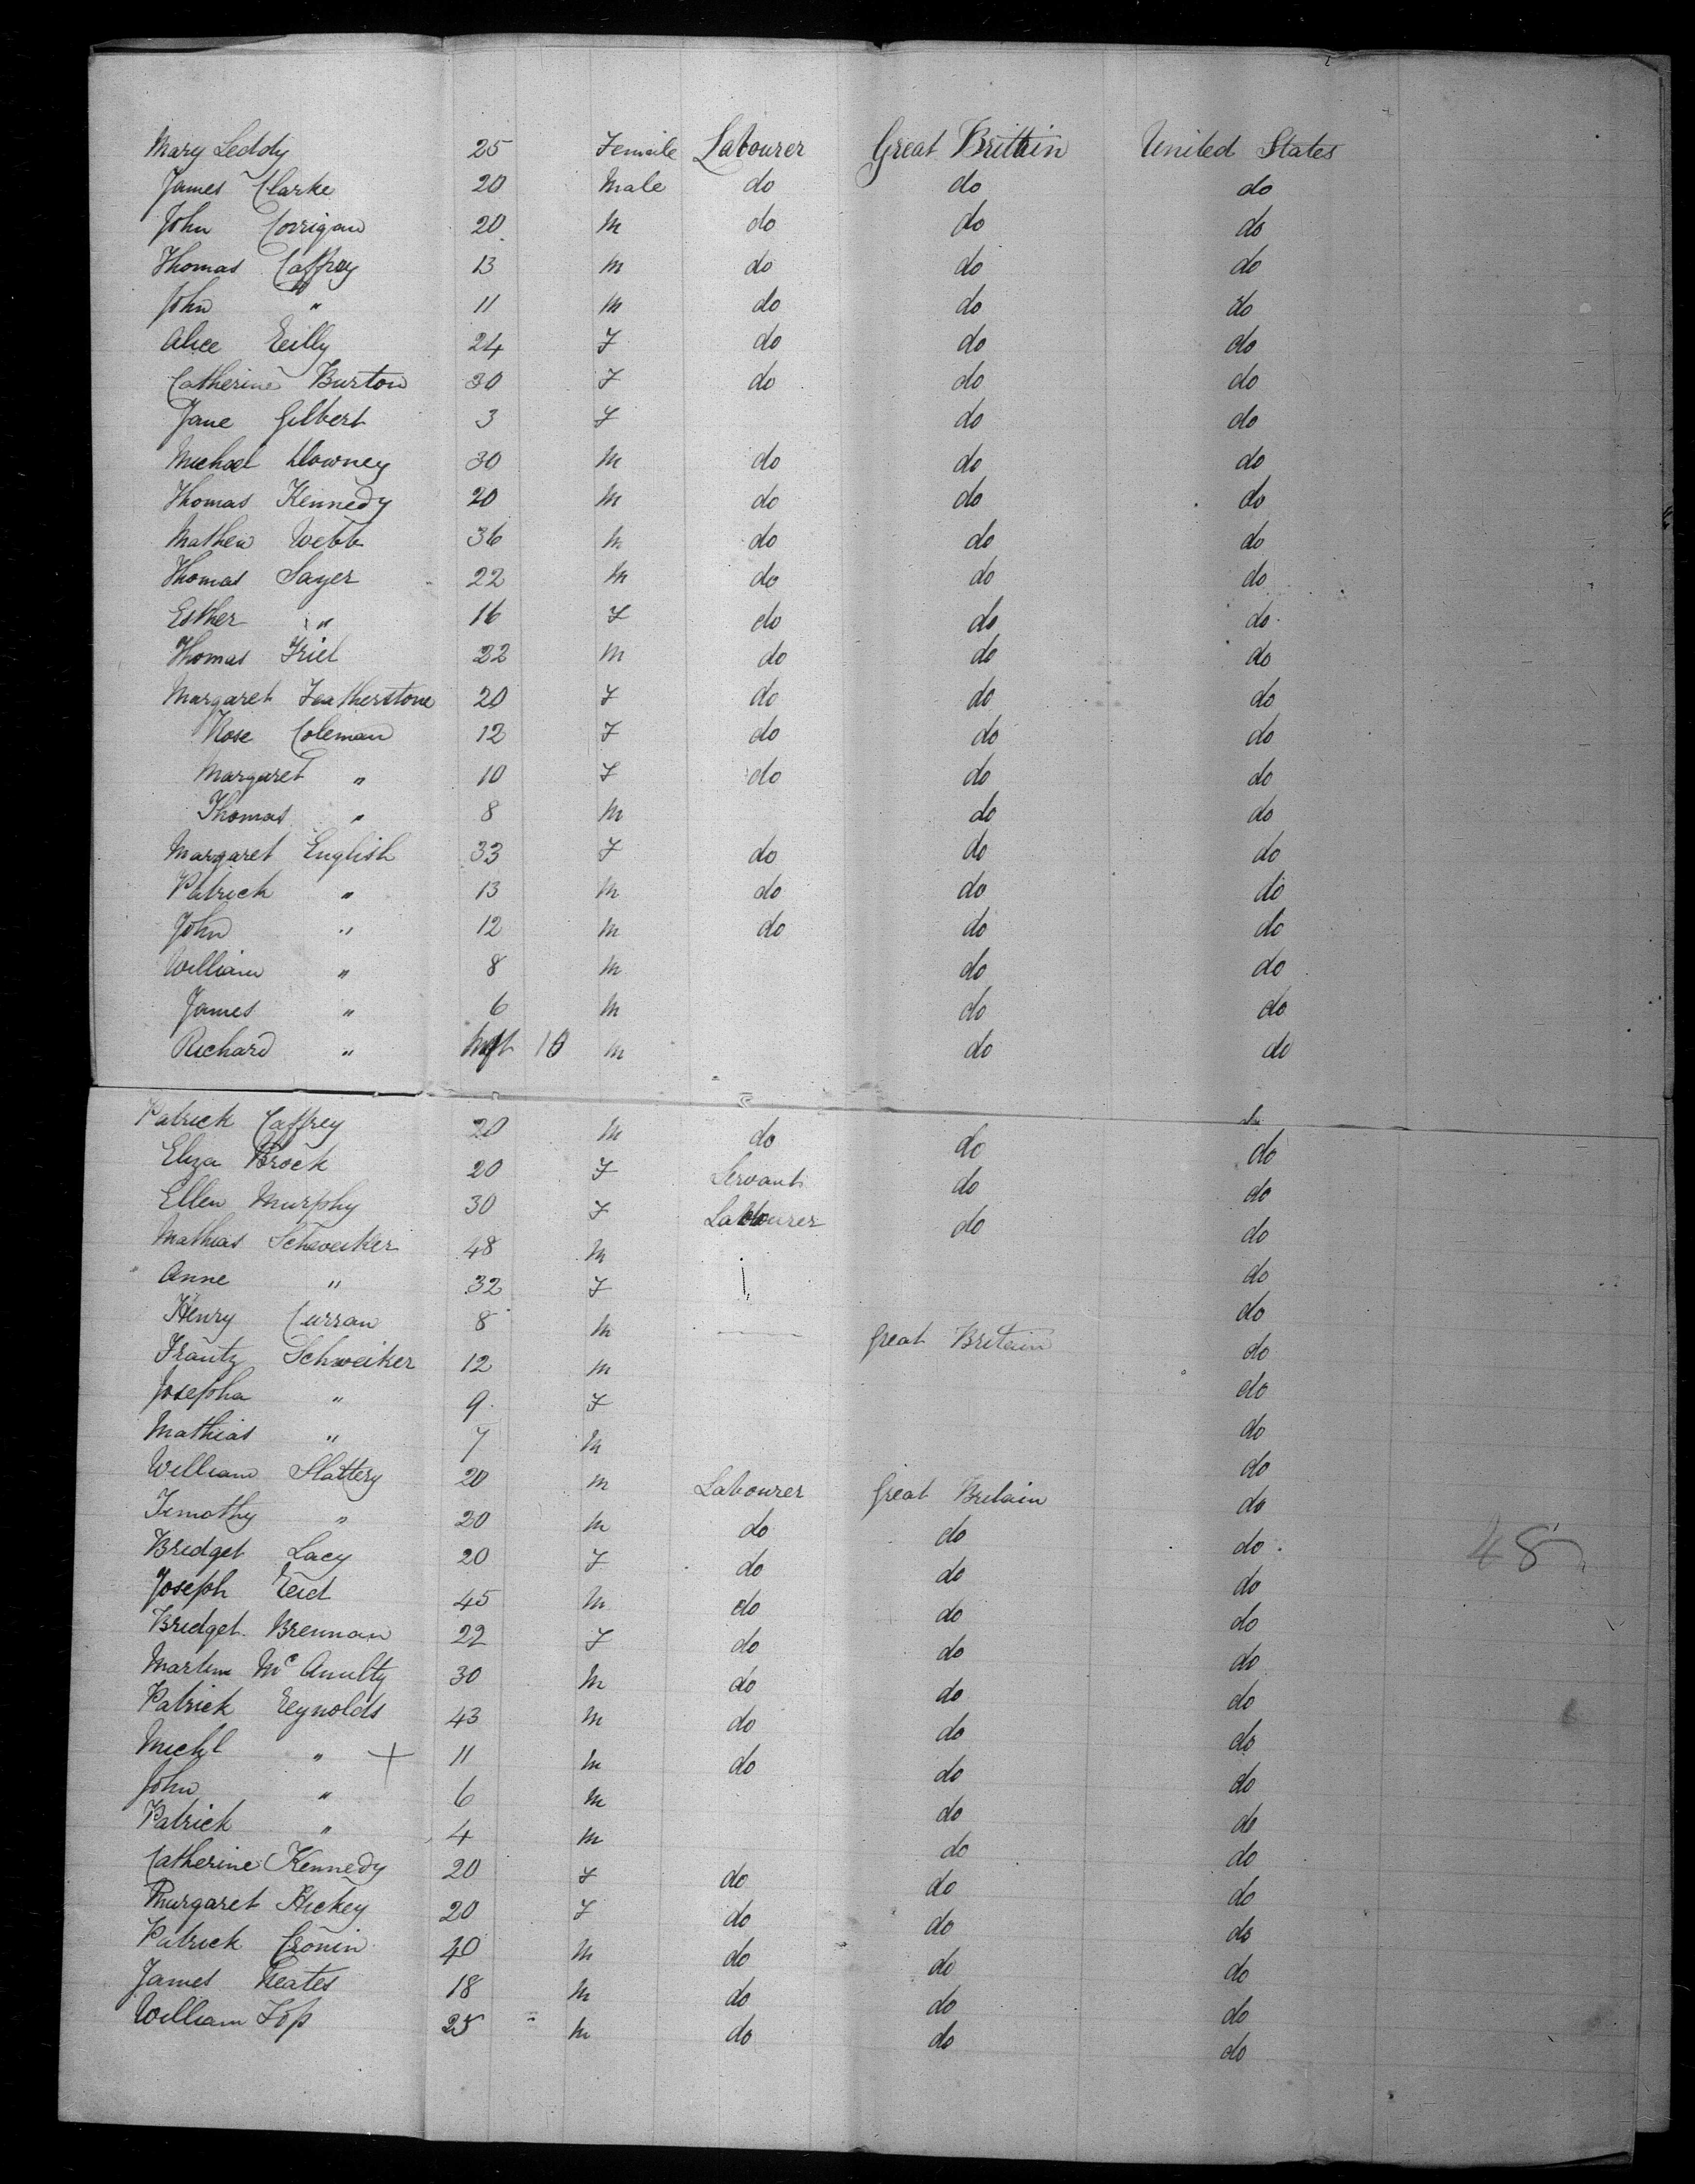 Mary Leddy 25 Female Labourer Great Brittin United States
James Clarke 20 Male do do do
John Corrigan 20 M do do do
Thomas Caffrey 13 M do do do
John " 11 M do do do
Alice Reilly 24 F do do do
Catherine Burton 30 F do do do
Jane Gilbert 3 F do do
Michael Downey 30 M do do do
Thomas Kennedy 20 M do do do
Mathew Webb 36 M do do do
Thomas Sayer 22 M do do do
Esther " 16 F do do do
Thomas Friel 22 M do do do
Margaret Featherstone 20 F do do do
Rose Coleman 12 F do do do
Margaret " 10 F do do do
Thomas " 8 M do do
Margaret English 33 F do do do
Patrick " 13 M do do do
John " 12 M do do do
William " 8 M do do
James " 6 M do do
Richard " 10 M do do
do
Patrick Caffrey 20 M do do do
Eliza Brock 20 F Servant do do
Ellen Murphy 30 F Labourer do do
Mathias Schweiker 48 M do
Anne " 32 F do
Henry Curran 8 M Great Britain do
Frantz Schweiker 12 M do
Josepha " 9 F do
Mathias " 7 M do
William Slattery 20 M Labourer Great Britain do
Timothy " 20 M do do do
Bridget Lacy 20 F do do do
Joseph Reid 45 M do do do
Bridget Brennan 22 F do do do
Martin McAnulty 30 M do do do
Patrick Reynolds 43 M do do do
Michl " + 11 M do do do
John " 6 M do do
Patrick " 4 M do do
Catherine Kennedy 20 F do do do
Margaret Hickey 20 F do do do
Patrick Cronin 40 M do do do
James Keates 18 M do do do
William Fop 25 M do do do
48